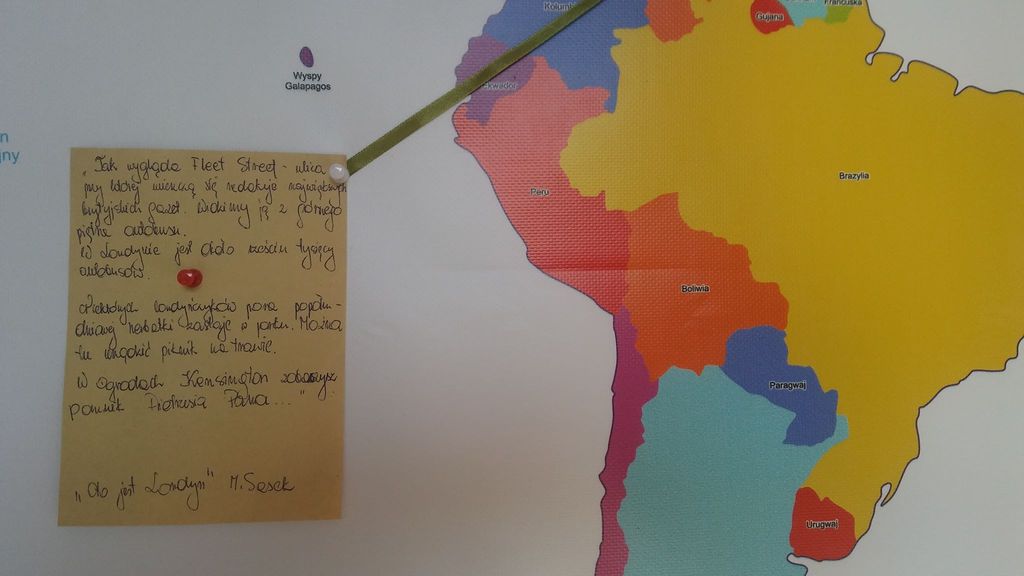 Kolumb
Gujana
Francuska
Wyspy
Galapagos
Ekwador
n
jny
Peru
Brazylia
Boliwia
Paragwaj
Urugwaj
"Tak wygląda Fleet Street - ulica
przy której mieszczą się redakcje największych
brytyjskich gazet. Widzimy ją z górnego
piętra autobusu.
W Londynie jest około sześciu tysięcy
autobusów.
Niektórych londyńczyków pora popołu-
dniowej herbatki zastaje w parku. Można
tu urządzić piknik na trawie.
W Ogrodach Kensington zobaczysz
pomnik Piotrusia Pana..."
"Oto jest Londyn" M. Sasek